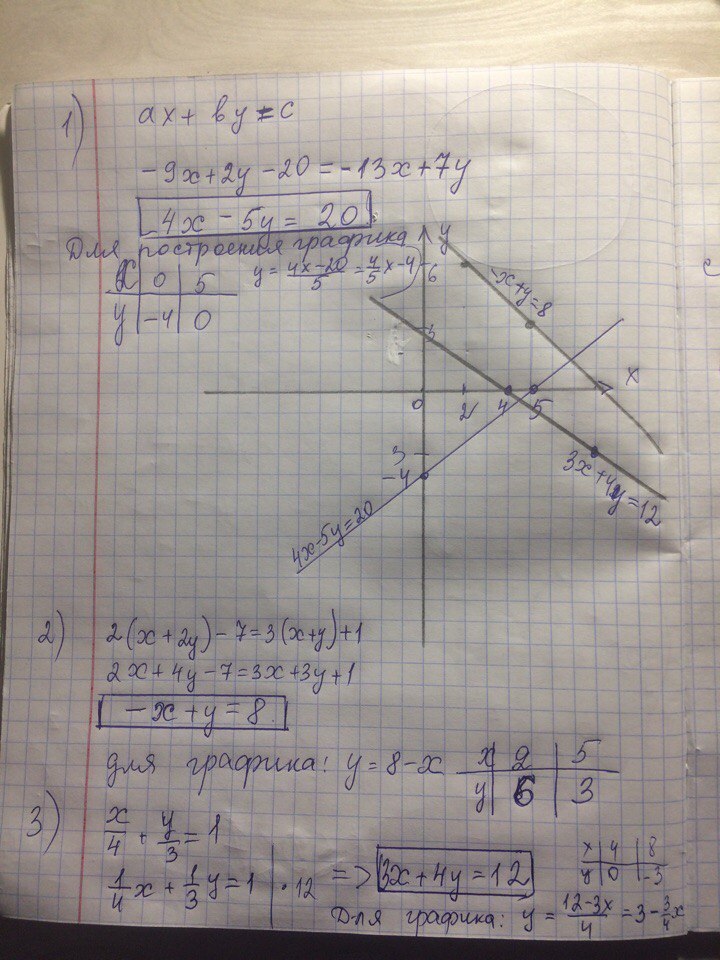 1) ax + by = c
-9x+2y-20 = -13x+7y
4x - 5y = 20
Для построения графика
x 0 5
y -4 0
y = 4x-20/5 = 4/5 x-4
y
6
-x+y=8
3
x
0 2 4 5 7
3
-4
3x+4y=12
4x-5y=20
2) 2(x+2y)-7=3(x+y)+1
2x+4y-7=3x+3y+1
-x+y=8
для графика: y=8-x
x 2 5
y 6 3
3) x/4 + y/3 = 1
1/4 x + 1/3 y = 1 | · 12 => 3x+4y=12
x 4 8
y 0 -3
Для графика: y = 12-3x/4 = 3-3/4 x
c